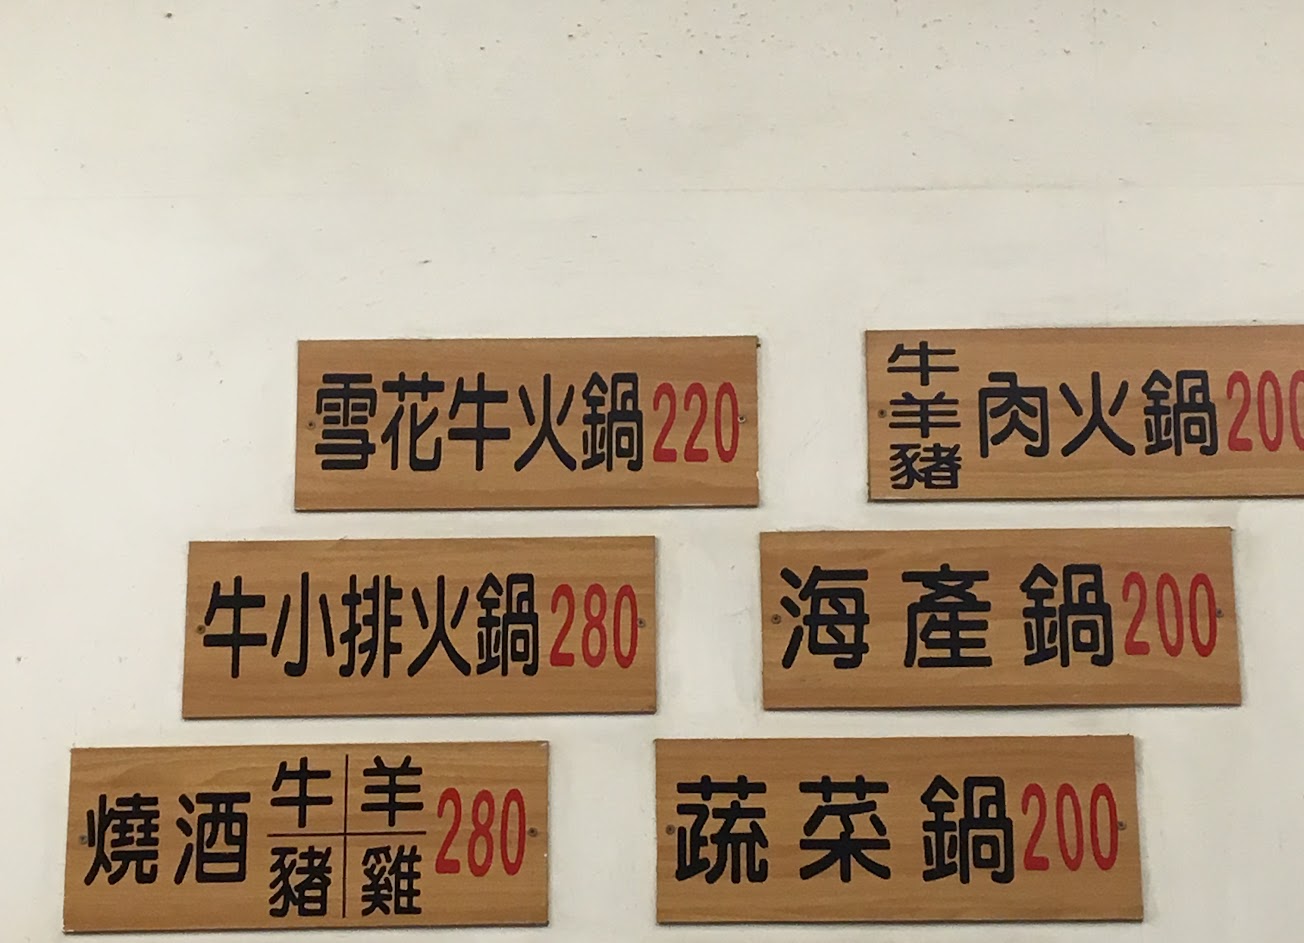 雪花牛火鍋220
牛羊豬肉火鍋200
牛小排火鍋280
海產鍋200
燒酒牛羊豬雞280
蔬菜鍋200